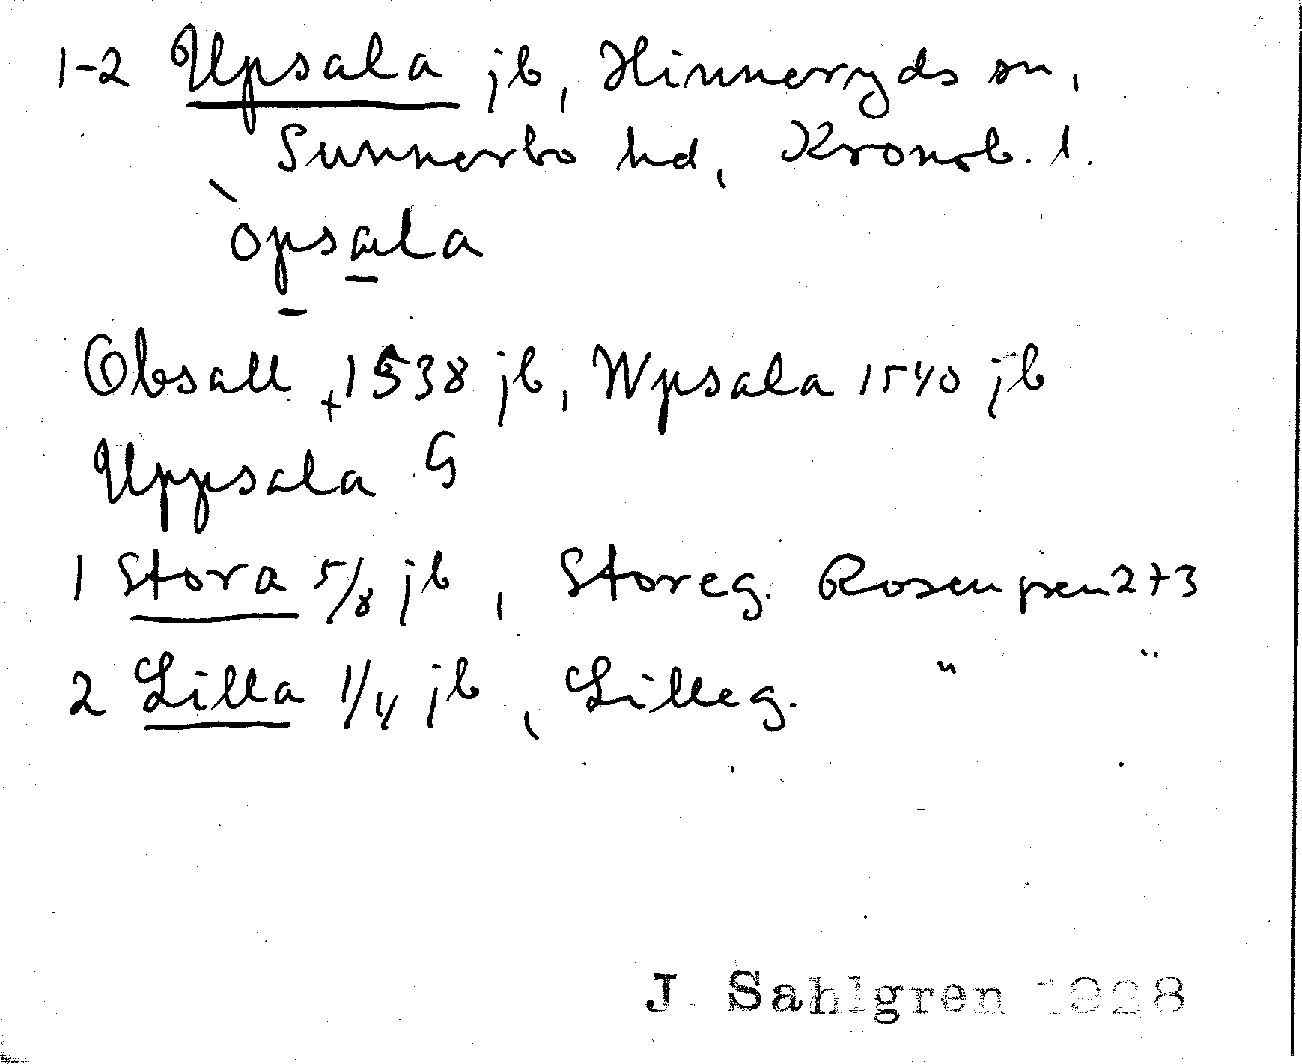 1-2 Upsala jb, Hinneryds sn,
Sunnerbo hd, Kronob. l.
`opsala
Obsall + 1538 jb, Wpsala 1540 jb
Uppsala G
1 Stora 5/8 jb, Storeg. Rosen psen 2+3
2 Lilla 1/4 jb, Lilleg. " "
J Sahlgren 1928